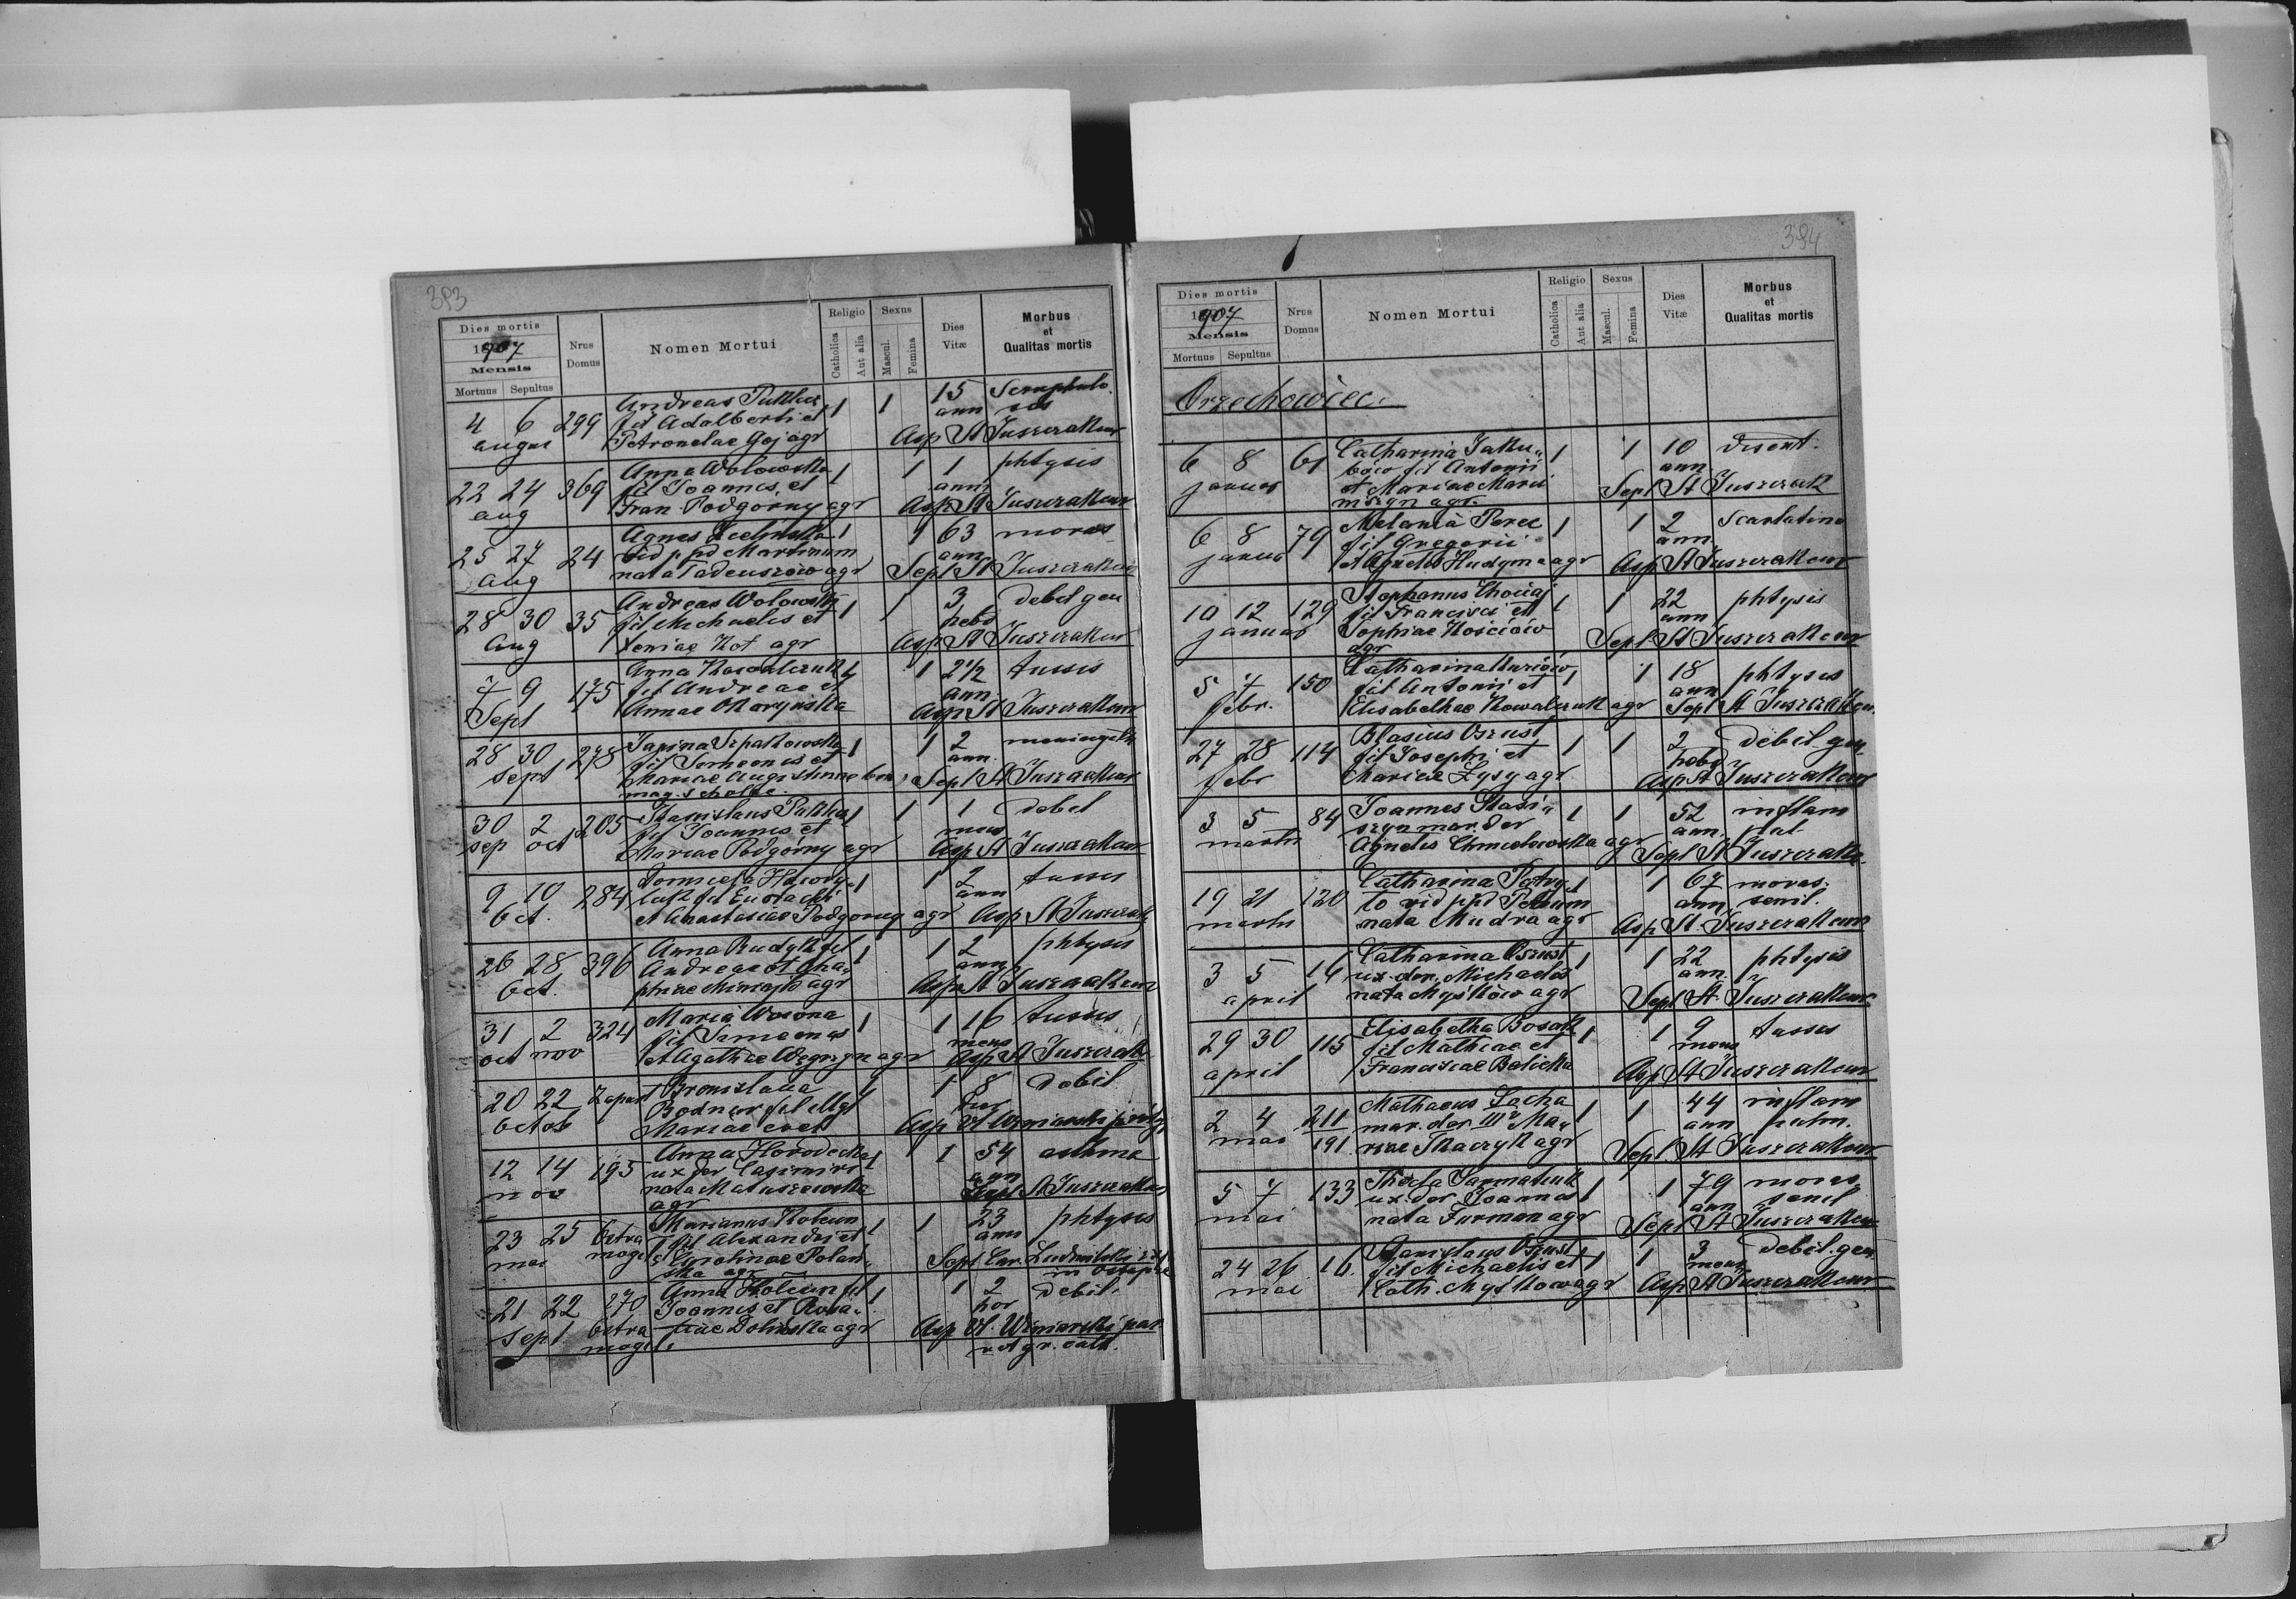 383
Dies mortis
1907
Mensis
Mortuus Sepultus
Nrus Domus
Nomen Mortui
Religio
Catholica
Aut alia
Sexus
Mascul.
Femina
Dies Vitæ
Morbus et Qualitas mortis
4 6 299 Andreas 1 1 15
augus fil Adalberti et ann
Petronelae Goj agr Asp St Juszczakiew
22 24 369 Anna Wolowska 1 1 1 phtysis
aug fil Joannis et ann
Fran Podgorny agr Asp St Juszczakiew
25 27 24 Agnes 1 1 63 moras
aug vid p pd Martinum ann
nata Tadeuszów agr Sepl St Juszczakiew
28 30 35 Andreas Wolowski 1 1 3 debil gen
Aug fil Michaelis et hebd
Xeniae Kot agr Asp St Juszczakiew
7 9 175 Anna Kowalczuk 1 1 2½ tussis
Sept fil Andreae et ann
Annae Asp St Juszczakiew
28 30 278 Janina Szpakowska 1 1 2
sept fil Simeonis et ann.
Mariae Sepl St Juszczakiew
mag. scholae.
30 2 205 Stanislaus 1 1 1 debil
sep oct fil Joannis et mens
Mariae Podgórny agr Asp St Juszczakiew
9 10 284 1 1 2 tussis
Oct. fil Eustachii ann
et Anastasiae Podgorny agr Asp St Juszczak
26 28 396 Anna Rudyk fil 1 1 2 phtysis
Oct. Andreae et Aga„ ann
agr Asp St Juszczakiew
31 2 324 Maria 1 1 16 tussis
oct nov fil Simeonis mens
et Agathae Węgrzyn agr Asp St Juszczak
20 22 Bronislava 1 1 8 debil
Octob Bodnar fil Mgt
Mariae Asp Vl Winiarski
12 14 195 Anna Horodecka 1 1 54 asthma
nov ux der Casimiri ann
nata Matuszewska Sepl St Juszczakiew
agr
23 25 Extra Marianus Koleun 1 1 23 phtysis
mai mogil fil Alexandri et ann
Carolinae Polań„ Sepl Car.
ska agr
21 22 270 Anna fil 1 1 2 debil.
Sept Extra Joannis et Rosa„ hor
mogil. liae Dolinska agr Asp Vl. Winiarski par
r gr. cath.
384
Dies mortis
1907
Mensis
Mortuus Sepultus
Nrus Domus
Nomen Mortui
Religio
Catholica
Aut alia
Sexus
Mascul.
Femina
Dies Vitæ
Morbus et Qualitas mortis
Orzechowiec
6 8 61 Catharina Jaku„ 1 1 10 disent.
januar bów fil Antonii ann.
et Mariae Marci Sepl St Juszczak
agr.
6 8 79 Melania Perec 1 1 2 Scarlatina
januar fil Gregorii ann.
et Agnetis Hudyma agr Asp St Juszczakiew
10 12 129 Stephanus 1 1 22 phtysis
januar fil Francisci et ann
Sophiae Kościów Sepl St. Juszczakiew
agr
5 7 150 Catharina 1 1 18 phtysis
febr. fil Antonii et ann
Elisabethae Kowalczuk agr Sepl St Juszczakiew.
27 28 114 Blasius Oszust 1 1 2 debil gen
febr fil Josephi et hebd
Mariae Łysy agr Asp St Juszczakiew
3 5 84 Joannes Stasi„ 1 1 52 inflam
martii szyn mar. der ann. pul
Agnetis Chmielowska agr Sepl St Juszczakie.
19 21 120 Catharina 1 1 67 moras.
martii to vid p pd Petrum ann senil.
nata Mudra agr Asp St. Juszczakiew
3 5 16 Catharina Oszust 1 1 22 phtysis
april ux. der. Michaelis ann.
nata Myśków agr Sepl St. Juszczakiew.
29 30 115 Elisabetha Bosak 1 1 9 tussis
april fil Mathiae et mens
Franciscae Bielicka Asp St Juszczakiew
2 4 211 Mathaeus Socha 1 1 44 inflam
mai 191 mar. der III° Ma„ ann pulm.
riae Tkaczyk agr Sepl. St Juszczakiew
5 7 133 Thecla Sarmatiuk 1 1 79 moras
mai ux. der Joannis ann senil
nata Furman agr Sepl St Juszczakiew
24 26 16. Stanislaus Oszust 1 1 3 debil. gen
mai fil Michaelis et mens
Cath. Myśków agr Asp St Juszczakiew